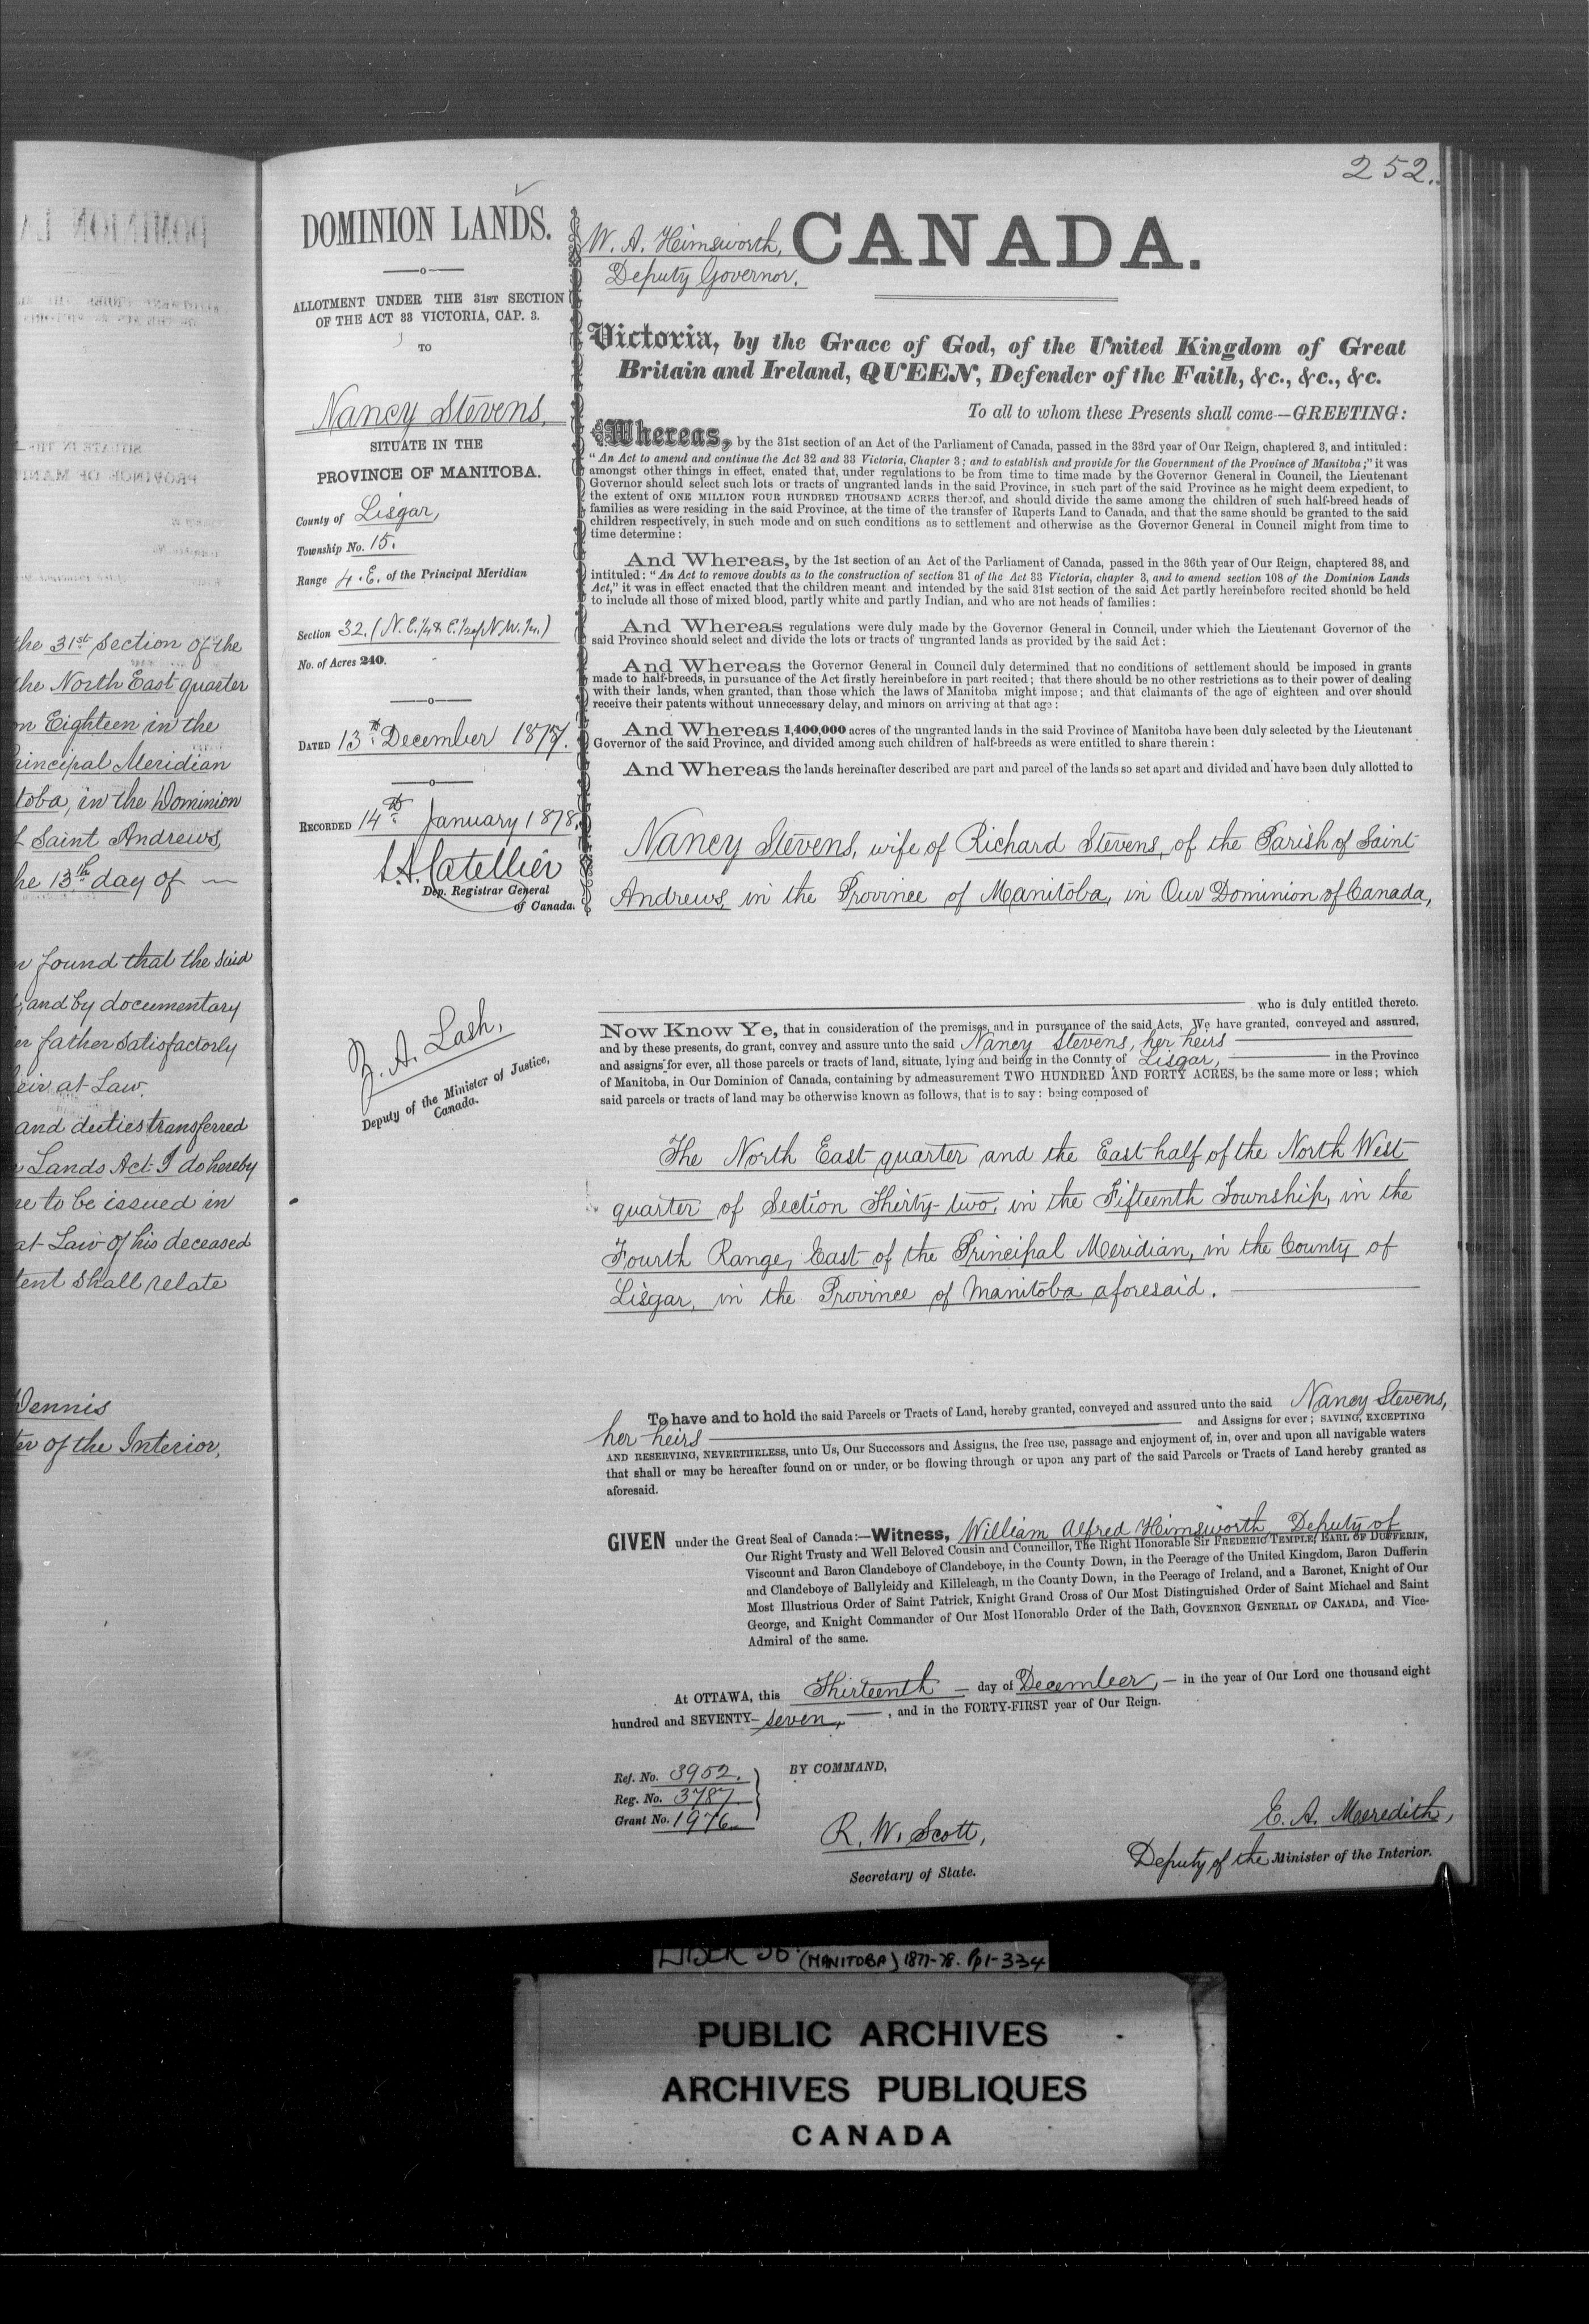 252.
the 31st Section of the
the North East quarter
Eighteen in the
Principal Meridian
in the Dominion
Saint Andrews,
he 13th day of —
found that the said
and by documentary
father satisfactorly
at Law.
and duties transferred
Lands Act I do hereby
to be issued in
at Law of his deceased
shall relate
Dennis
of the Interior,
DOMINION LANDS.
ALLOTMENT UNDER THE 31ST SECTION
OF THE ACT 33 VICTORIA, CAP. 3.
TO
Nancy Stevens,
SITUATE IN THE
PROVINCE OF MANITOBA.
County of Lisgar,
Township No. 15.
Range 4. E. of the Principal Meridian
Section 32. (N.E. 1/4 & E. 1/2 of N.W. 1/4.)
No. of Acres 240.
DATED 13th December 1877.
RECORDED 14th January 1878,
L.A. Catellier
Dep. Registrar General
of Canada.
Z. A. Lash,
Deputy of the Minister of Justice,
Canada.
W. A. Himsworth,
Deputy Governor.
CANADA.
Victoria, by the Grace of God, of the United Kingdom of Great
Britain and Ireland, QUEEN, Defender of the Faith, &c., &c., &c.
To all to whom these Presents shall come—GREETING:
Whereas, by the 31st section of an Act of the Parliament of Canada, passed in the 33rd year of Our Reign, chaptered 3, and intituled:
"An Act to amend and continue the Act 32 and 33 Victoria, Chapter 3; and to establish and provide for the Government of the Province of Manitoba;" it was
amongst other things in effect, enated that, under regulations to be from time to time made by the Governor General in Council, the Lieutenant
Governor should select such lots or tracts of ungranted lands in the said Province, in such part of the said Province as he might deem expedient, to
the extent of ONE MILLION FOUR HUNDRED THOUSAND ACRES thereof, and should divide the same among the children of such half-breed heads of
families as were residing in the said Province, at the time of the transfer of Ruperts Land to Canada, and that the same should be granted to the said
children respectively, in such mode and on such conditions as to settlement and otherwise as the Governor General in Council might from time to
time determine:
And Whereas, by the 1st section of an Act of the Parliament of Canada, passed in the 36th year of Our Reign, chaptered 38, and
intituled: "An Act to remove doubts as to the construction of section 31 of the Act 33 Victoria, chapter 3, and to amend section 108 of the Dominion Lands
Act," it was in effect enacted that the children meant and intended by the said 31st section of the said Act partly hereinbefore recited should be held
to include all those of mixed blood, partly white and partly Indian, and who are not heads of families:
And Whereas regulations were duly made by the Governor General in Council, under which the Lieutenant Governor of the
said Province should select and divide the lots or tracts of ungranted lands as provided by the said Act:
And Whereas the Governor General in Council duly determined that no conditions of settlement should be imposed in grants
made to half-breeds, in pursuance of the Act firstly hereinbefore in part recited; that there should be no other restrictions as to their power of dealing
with their lands, when granted, than those which the laws of Manitoba might impose; and that claimants of the age of eighteen and over should
receive their patents without unnecessary delay, and minors on arriving at that age:
And Whereas 1,400,000 acres of the ungranted lands in the said Province of Manitoba have been duly selected by the Lieutenant
Governor of the said Province, and divided among such children of half-breeds as were entitled to share therein:
And Whereas the lands hereinafter described are part and parcel of the lands so set apart and divided and have been duly allotted to
Nancy Stevens, wife of Richard Stevens, of the Parish of Saint
Andrews, in the Province of Manitoba, in Our Dominion of Canada,
who is duly entitled thereto.
Now Know Ye, that in consideration of the premises, and in pursuance of the said Acts, We have granted, conveyed and assured,
and by these presents, do grant, convey and assure unto the said Nancy Stevens, her heirs
and assigns for ever, all those parcels or tracts of land, situate, lying and being in the County of Lisgar, in the Province
of Manitoba, in Our Dominion of Canada, containing by admeasurement TWO HUNDRED AND FORTY ACRES, be the same more or less; which
said parcels or tracts of land may be otherwise known as follows, that is to say: being composed of
The North East quarter and the East half of the North West
quarter of Section Thirty-two, in the Fifteenth Township, in the
Fourth Range, East of the Principal Meridian, in the County of
Lisgar, in the Province of Manitoba aforesaid.
To have and to hold the said Parcels or Tracts of Land, hereby granted, conveyed and assured unto the said Nancy Stevens,
her heirs and Assigns for ever; SAVING, EXCEPTING
AND RESERVING, NEVERTHELESS, unto Us, Our Successors and Assigns, the free use, passage and enjoyment of, in, over and upon all navigable waters
that shall or may be hereafter found on or under, or be flowing through or upon any part of the said Parcels or Tracts of Land hereby granted as
aforesaid.
GIVEN under the Great Seal of Canada:—Witness, William Alfred Himsworth, Deputy of
Our Right Trusty and Well Beloved Cousin and Councillor, The Right Honorable Sir FREDERIC TEMPLE, EARL OF DUFFERIN,
Viscount and Baron Clandeboye of Clandeboye, in the County Down, in the Peerage of the United Kingdom, Baron Dufferin
and Clandeboye of Ballyleidy and Killeleagh, in the County Down, in the Peerage of Ireland, and a Baronet, Knight of Our
Most Illustrious Order of Saint Patrick, Knight Grand Cross of Our Most Distinguished Order of Saint Michael and Saint
George, and Knight Commander of Our Most Honorable Order of the Bath, GOVERNOR GENERAL OF CANADA, and Vice-
Admiral of the same.
At OTTAWA, this Thirteenth — day of December, — in the year of Our Lord one thousand eight
hundred and SEVENTY-seven, —, and in the FORTY-FIRST year of Our Reign.
Ref. No. 3952.
Reg. No. 3787.
Grant No. 1976.
BY COMMAND,
R. W. Scott,
Secretary of State.
E. A. Meredith,
Deputy of the Minister of the Interior.
(MANITOBA) 1877-78. Pp 1-334
PUBLIC ARCHIVES
ARCHIVES PUBLIQUES
CANADA